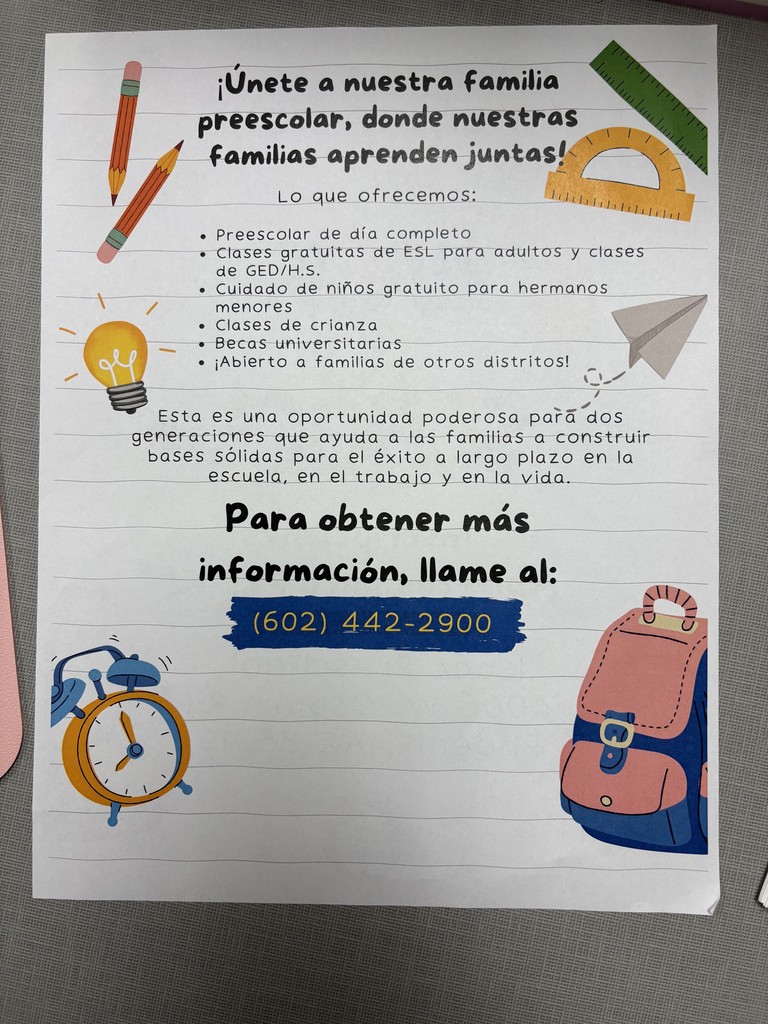 ¡Únete a nuestra familia
preescolar, donde nuestras
familias aprenden juntas!
Lo que ofrecemos:
• Preescolar de día completo
• Clases gratuitas de ESL para adultos y clases
de GED/H.S.
• Cuidado de niños gratuito para hermanos
menores
• Clases de crianza
• Becas universitarias
• ¡Abierto a familias de otros distritos!
Esta es una oportunidad poderosa para dos
generaciones que ayuda a las familias a construir
bases sólidas para el éxito a largo plazo en la
escuela, en el trabajo y en la vida.
Para obtener más
información, llame al:
(602) 442-2900